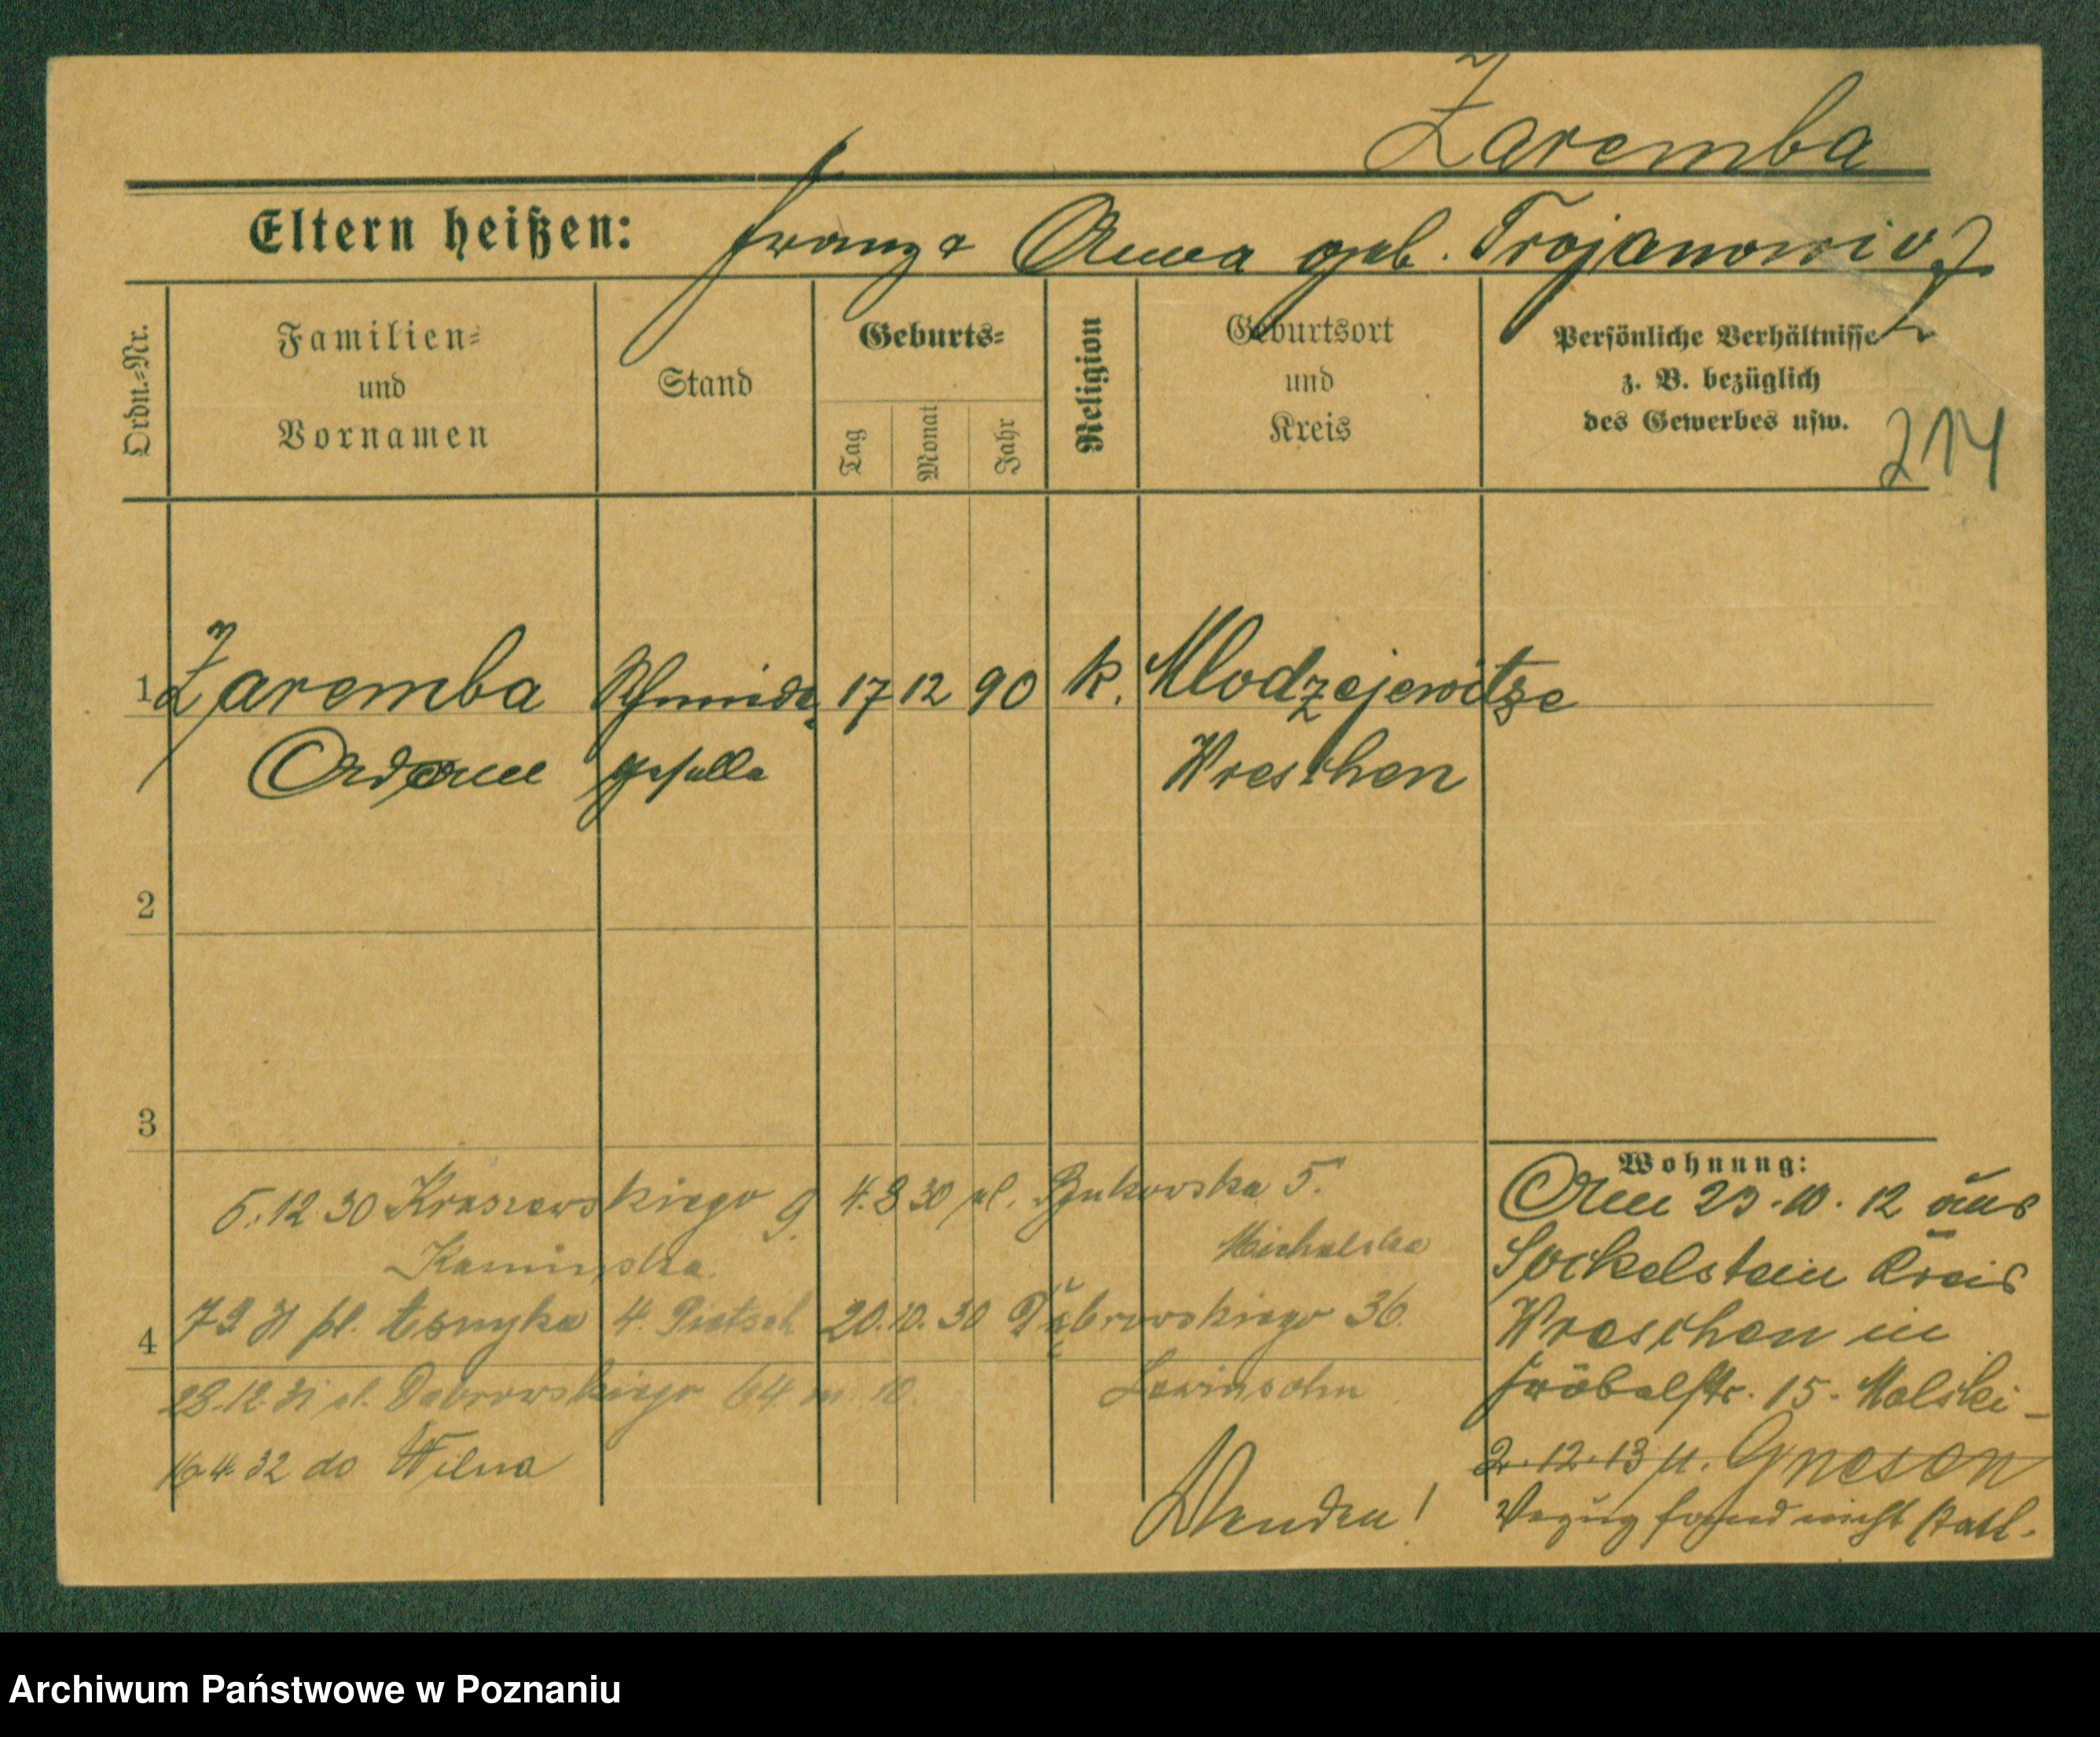 Zaremba
Eltern heißen: Franz & Anna geb. Trojanowicz
Ordn.-Nr.
Familien-
und
Vornamen
Stand
Geburts-
Tag
Monat
Jahr
Religion
Geburtsort
und
Kreis
Persönliche Verhältnisse
z. B. bezüglich
des Gewerbes usw.
214
1 Zaremba Schmiede- 17 12 90 k. Mlodzejewitze
geselle Wreschen
2
3
4
5.12 30 Kraszewskiego 9.
Kaminska.
7 9 31 pl. Asnyka 4. Pietsch
28.12.31 ul. Dabrowskiego 64 m. 10.
16.4.32 do Wilna
4.8 30 ul. Bukowska 5.
Michalska
20.10.30 Dąbrowskiego 36.
Lewinsohn
Wenden!
Wohnung:
Am 23.10.12 aus
Sockelstein Kreis
Wreschen in
Fröbelstr. 15. Molski-
2.12.13 n. Gnesen
Verzug fand nicht statt.
Archiwum Państwowe w Poznaniu